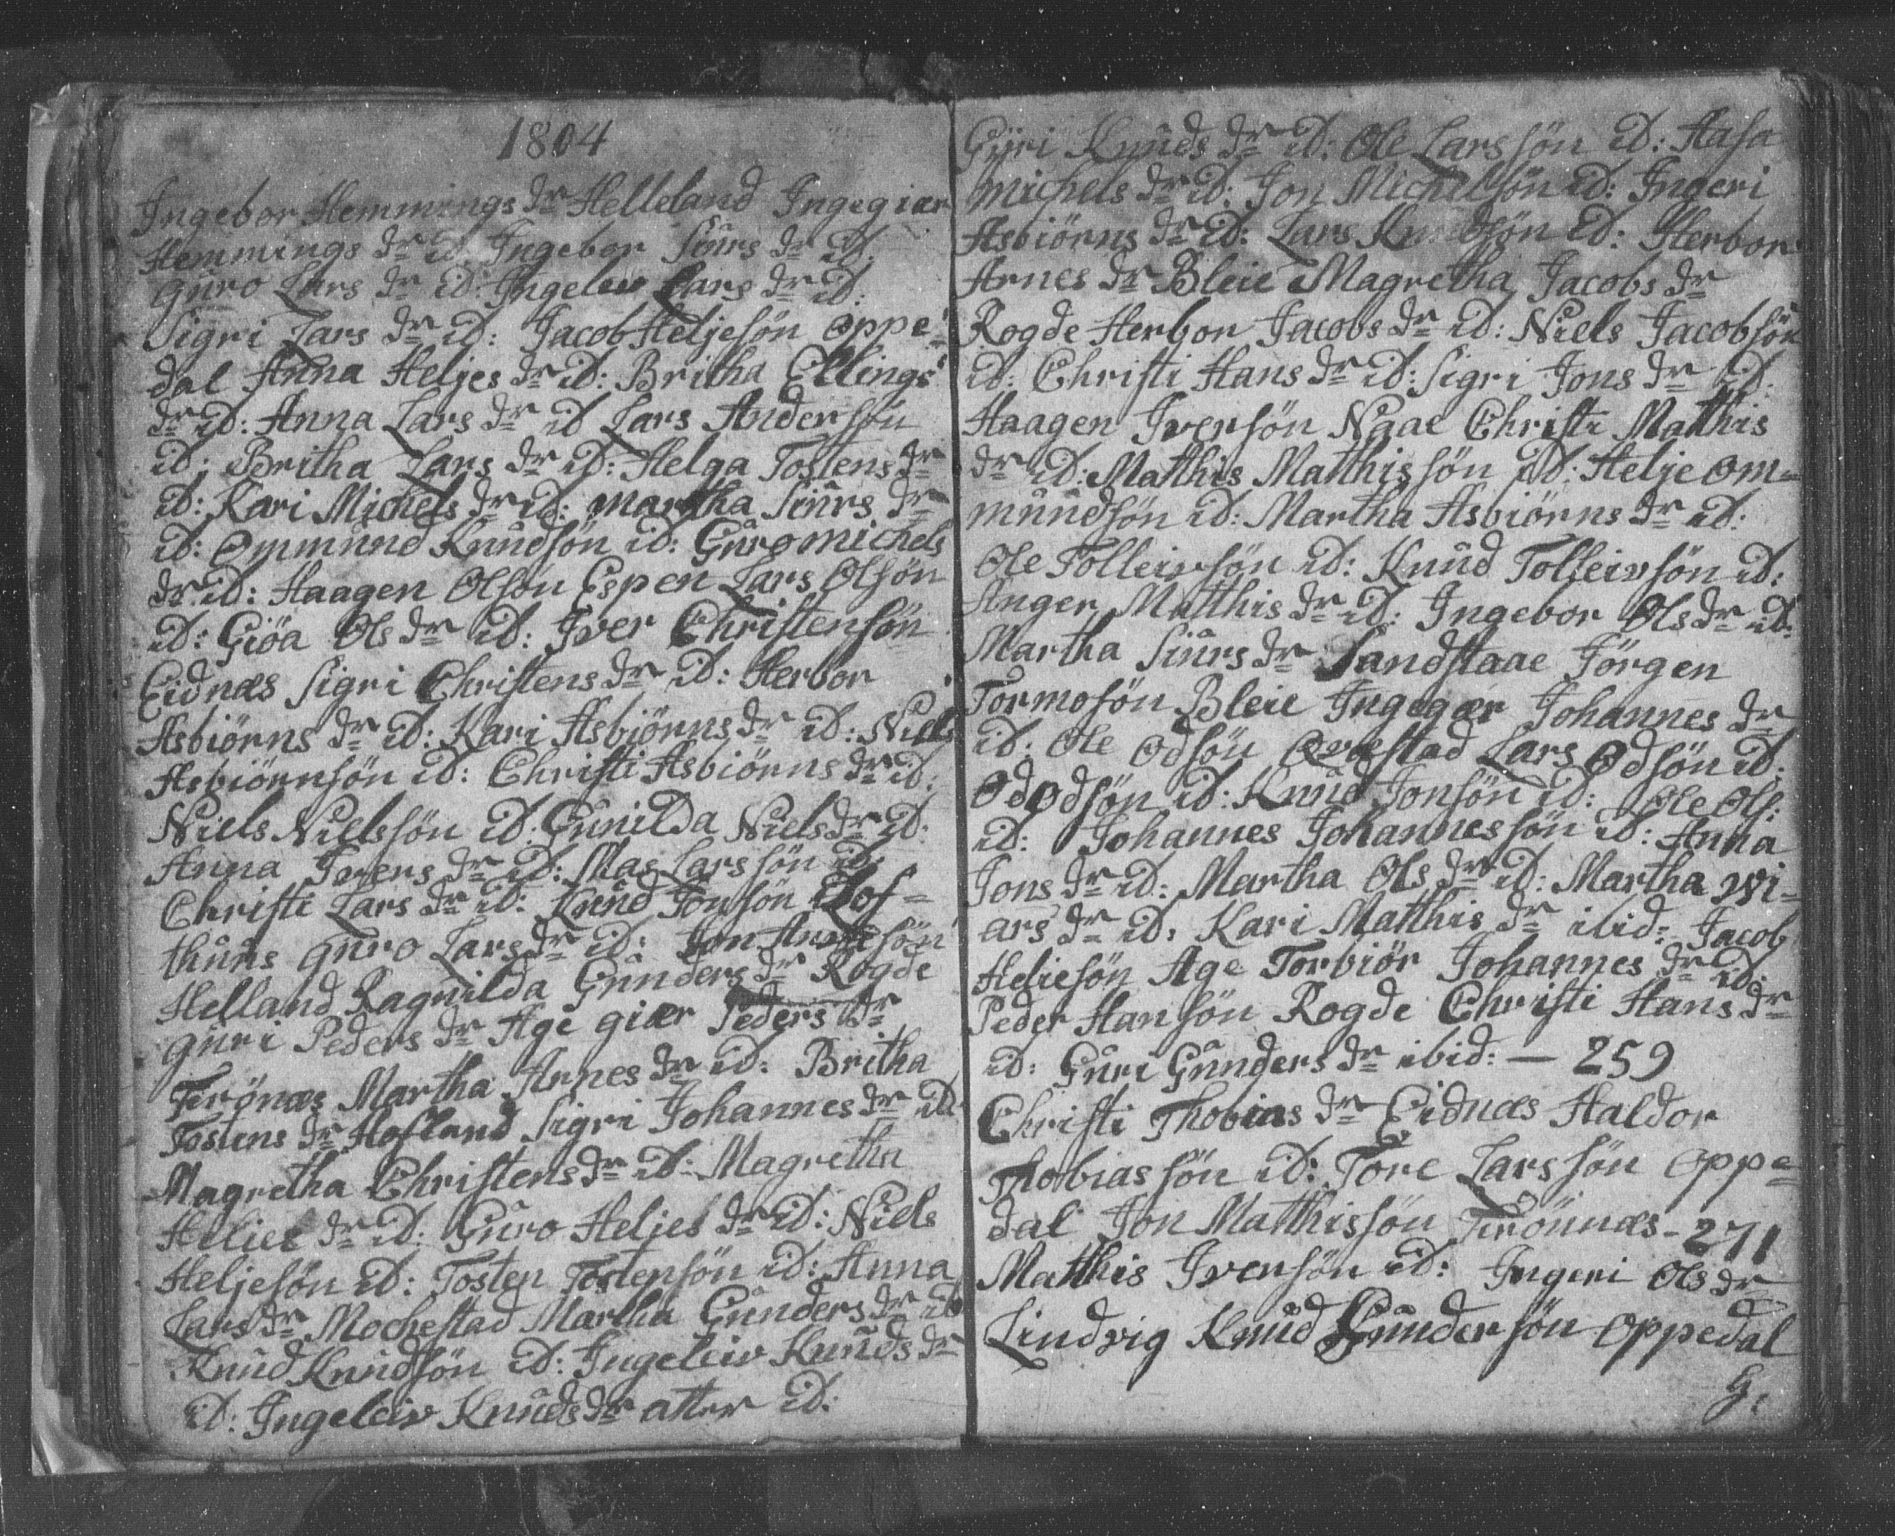 1804
Ingebor Hemmings dr Helleland Ingegiær
Hemmings dr id: Ingebor Siurs dr id:
Guro Lars dr id: Ingeleiv Lars dr id:
Sigri Lars dr id: Jacob Heljesön Oppe-
dal Anna Heljes dr id: Britha Ellings
dr id: Anna Lars dr id Lars Andersön
id: Britha Lars dr id: Helga Tostens dr
id: Kari Michels dr id: Martha Siurs dr
id: Ommund Knudsön id: Guro Michels
dr id: Haagen Olsön Espen Lars Olsön
id: Giöa Ols dr id: Iver Christensön
Eidnæs Sigri Christens dr id: Herbor
Asbiörns dr id: Kari Asbiörns dr id: Niels
Asbiörnsön id: Christi Asbiörns dr id:
Niels Nielssön id: Gunilda Niels dr id:
Anna Ivers dr id: Mas Larssön id:
Christi Lars dr id: Knud Jonsön Lof-
thuus Guro Lars dr id: Jon sön
Helland Ragnilda Gunders dr Rogde
Guri Peders dr Age giær Peders dr
Ferönæs Martha Arnes dr id: Britha
Tostens dr Hofland Sigri Johannes dr id:
Magretha Christens dr id: Magretha
Helies dr id: Guro Heljes dr id: Niels
Heljesön id: Tosten Tostensön id: Anna
Lars dr Mochestad Martha Gunders dr id:
Knud Knudsön id: Ingeleiv Knuds dr
id: Ingeleiv Knuds dr atter id:
Guri Knuds dr id: Ole Larssön id: Aasa
Michels dr id: Jon Michelsön id: Ingeri
Asbiörns dr id: Lars Knudsön id: Herbor
Arnes dr Bleie Magretha Jacobs dr
Rogde Herbor Jacobs dr id: Niels Jacobsön
id: Christi Hans dr id: Sigri Jons dr id:
Haagen Iversön Naae Christi Mathis
dr id: Matthis Matthissön id: Helje Om-
mundsön id: Martha Asbiörns dr id:
Ole Tolleivsön id: Knud Tolleivsön id:
Anger Matthis dr id: Ingebor Ols dr id:
Martha Siurs dr Sandstaae Jörgen
Tormosön Bleie Ingegær Johannes dr
id: Ole Odsön Qvæstad Lars Odsön id:
Od Odsön id: Knud Jonsön id: Ole Ols:
id: Johannes Johannessön id: Anna
Jons dr id: Martha Ols dr id: Martha Vi-
ars dr id: Kari Matthis dr ibid: Jacob
Heliesön Age Torbiör Johannes dr id:
Peder Hansön Rogde Christi Hans dr
id: Guri Gunders dr ibid: — 259
Christi Thobias dr Eidnæs Haldor
Thobiassön id: Tore Larssön Oppe-
dal Jon Matthissön Ferönnæs - 271
Matthis Iversön id: Ingeri Ols dr
Lindvig Knud Gundersön Oppedal
G: